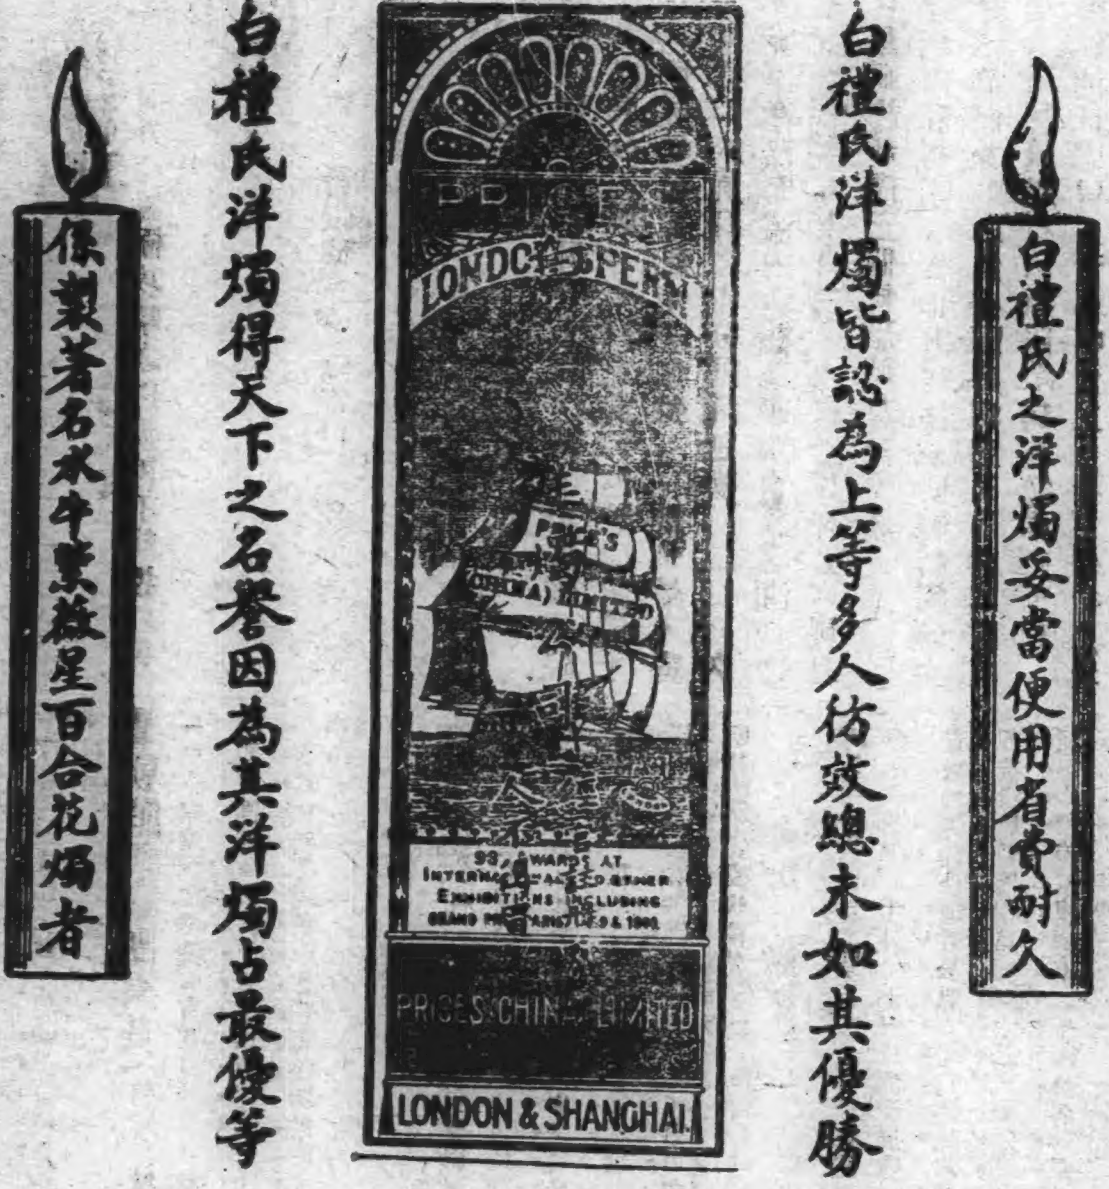 白禮氏之洋燭妥當便用省費耐久
白禮氏洋燭皆認為上等多人彷效總未如其優勝
PRICE'S
LONDON SPERM
PRICE'S
(CHINA) LIMITED
公
司
93 AWARDS AT
INTERNATIONAL AND OTHER
EXHIBITIONS INCLUDING
GRAND PRIX PARIS
PRICES (CHINA) LIMITED
LONDON & SHANGHAI.
白禮氏洋燭得天下之名譽因為其洋燭占最優等
係製著名水牛紫薇星百合花燭者